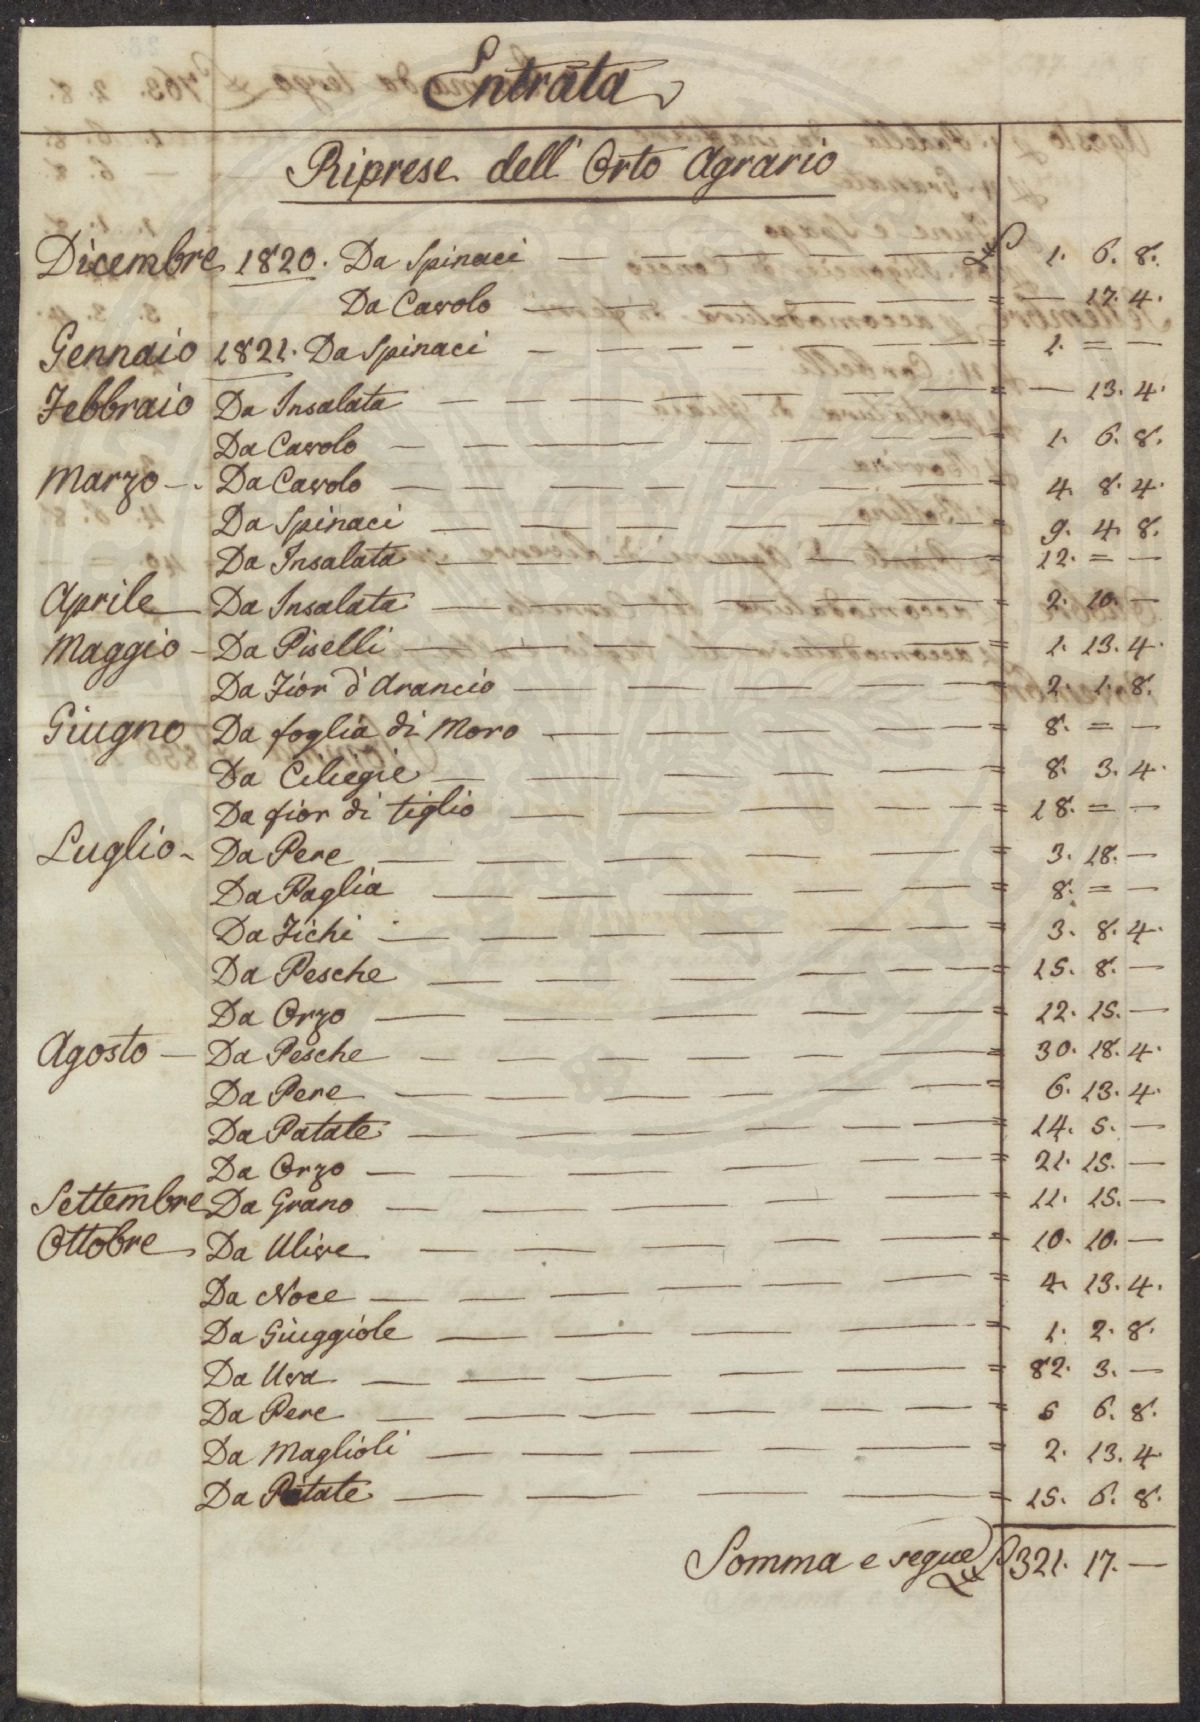 Entrata
Riprese dell' Orto Agrario
Dicembre 1820. Da Spinaci — £ 1. 6. 8.
Da Cavolo — = — 17. 4.
Gennaio 1821. Da Spinaci — = 1. = —
Febbraio Da Insalata — = — 13. 4.
Da Cavolo — = 1. 6. 8.
Marzo — Da Cavolo — = 4. 8. 4.
Da Spinaci — = 9. 4. 8.
Da Insalata — = 12. = —
Aprile — Da Insalata — = 2. 10. —
Maggio — Da Piselli — = 1. 13. 4.
Da Fior d'Arancio — = 2. 1. 8.
Giugno Da foglia di Moro — = 8. = —
Da Ciliegie — = 8. 3. 4.
Da fior di tiglio — = 18. = —
Luglio — Da Pere — = 3. 18. —
Da Paglia — = 8. = —
Da Fichi — = 3. 8. 4.
Da Pesche — = 15. 8. —
Da Orzo — = 12. 15. —
Agosto — Da Pesche — = 30. 18. 4.
Da Pere — = 6. 13. 4.
Da Patate — = 14. 5. —
Da Orzo — = 21. 15. —
Settembre Da Grano — = 11. 15. —
Ottobre Da Ulive — = 10. 10. —
Da Noce — = 4. 13. 4.
Da Giuggiole — = 1. 2. 8.
Da Uva — = 82. 3. —
Da Pere — = 6 6. 8.
Da Maglioli — = 2. 13. 4
Da Patate — = 15. 6. 8.
Somma e segue £ 321. 17. —